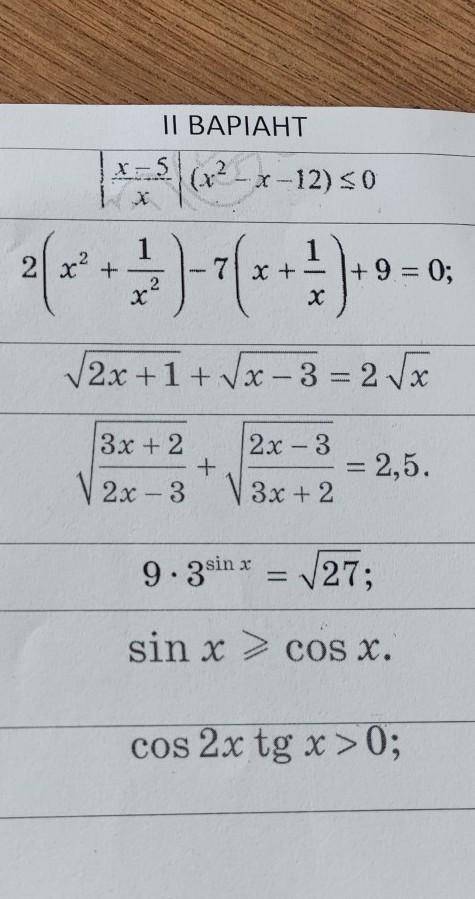 II ВАРІАНТ
|x − 5 / x| (x² − x − 12) ≤ 0
2(x² + 1/x²) − 7(x + 1/x) + 9 = 0;
√(2x + 1) + √(x − 3) = 2√x
√((3x + 2)/(2x − 3)) + √((2x − 3)/(3x + 2)) = 2,5.
9 · 3^(sin x) = √27;
sin x ⩾ cos x.
cos 2x tg x > 0;